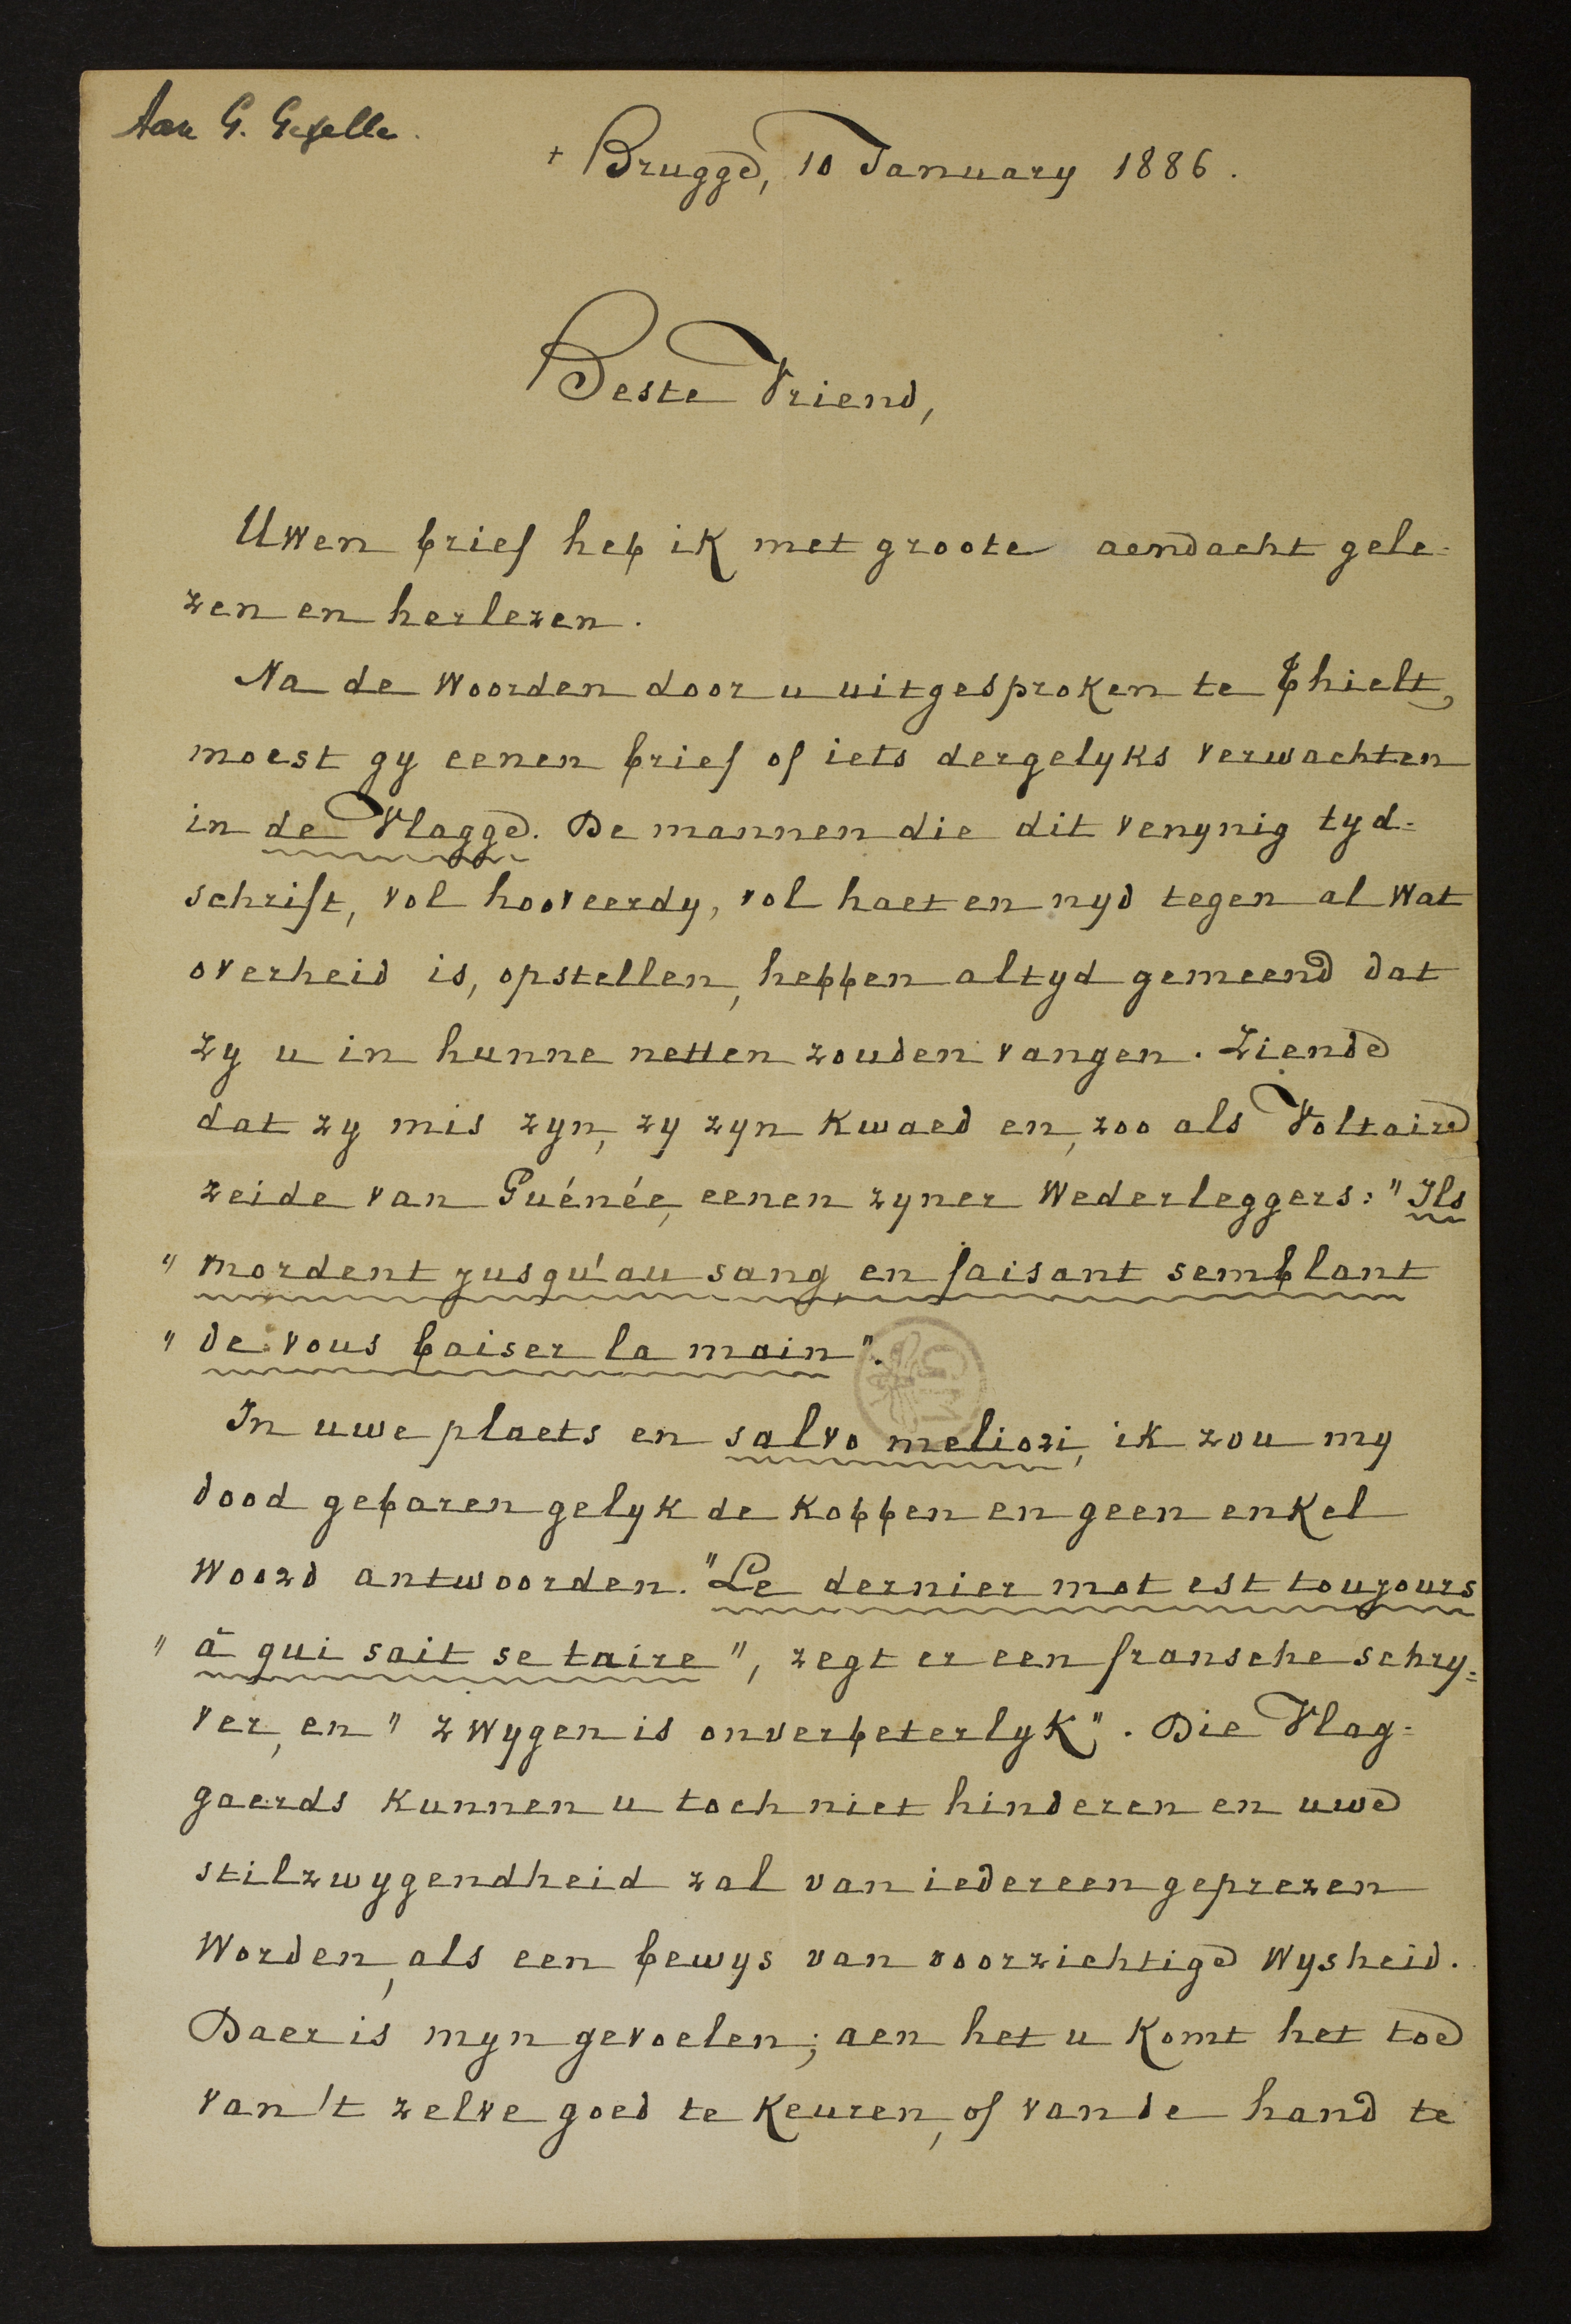 Aan G. Gezelle.
+ Brugge, 10 January 1886.
Beste Vriend,
Uwen brief heb ik met groote aendacht gele=
zen en herlezen.
Na de woorden door u uitgesproken te Thielt,
moest gy eenen brief of iets dergelyks verwachten
in de Vlagge. De mannen die dit venynig tyd=
schrift, vol hooveerdy, vol haet en nyd tegen al wat
overheid is, opstellen, hebben altyd gemeend dat
zy u in hunne netten zouden vangen. Ziende
dat zy mis zyn, zy zyn kwaed en, zoo als Voltaire
zeide van Guénée, eenen zyner wederleggers: "Ils
" mordent jusqu'au sang, en faisant semblant
" de vous baiser la main".
In uwe plaets en salvo meliori, ik zou my
dood gebaren gelyk de kobben en geen enkel
woord antwoorden. "Le dernier mot est toujours
" à qui sait se taire", zegt er een fransche schry=
ver, en "zwygen is onverbeterlyk". Die Vlag=
gaerds kunnen u toch niet hinderen en uwe
stilzwygendheid zal van iedereen geprezen
worden, als een bewys van voorzichtige wysheid.
Daer is myn gevoelen; aen het u komt het toe
van 't zelve goed te keuren, of van de hand te